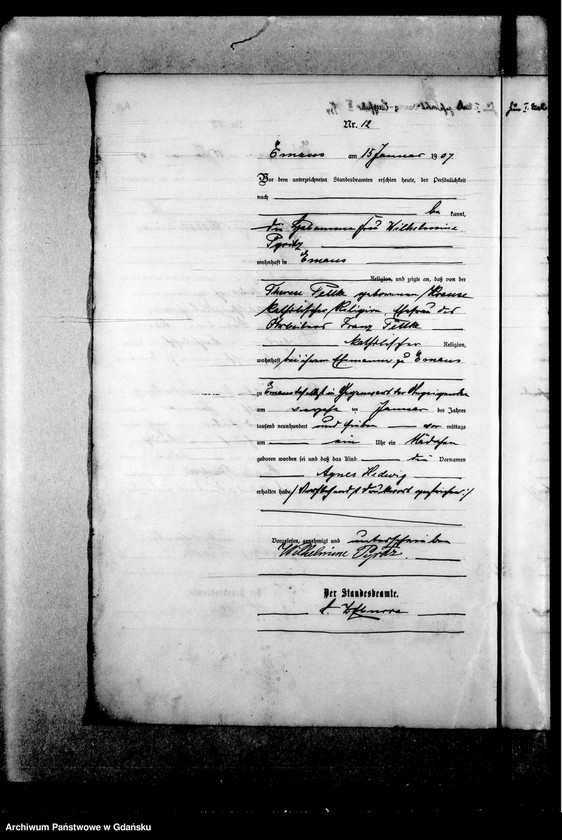 Nr. 12
Emaus am 15 Januar 1907.
Vor dem unterzeichneten Standesbeamten erschien heute, der Persönlichkeit
nach
be kannt,
die Hebamme Frau Wilhelmine
Pyritz
wohnhaft in Emaus
Religion, und zeigte an, daß von der
Therese Tettk geborenen Krause
katholischer Religion, Ehefrau des
Arbeiters Franz Tettk
katholischer Religion,
wohnhaft bei ihrem Ehemanne zu Emaus
zu Emaus selbst in Gegenwart der Anzeigenden
am Januar des Jahres
tausend neunhundert und sieben vor mittags
um ein Uhr ein Mädchen
geboren worden sei und daß das Kind die Vornamen
Agnes Hedwig
erhalten habe / Vorstehend 1 Druckwort gestrichen /
Vorgelesen, genehmigt und unterschrieben
Wilhelmine Pyritz.
Der Standesbeamte.
Archiwum Państwowe w Gdańsku